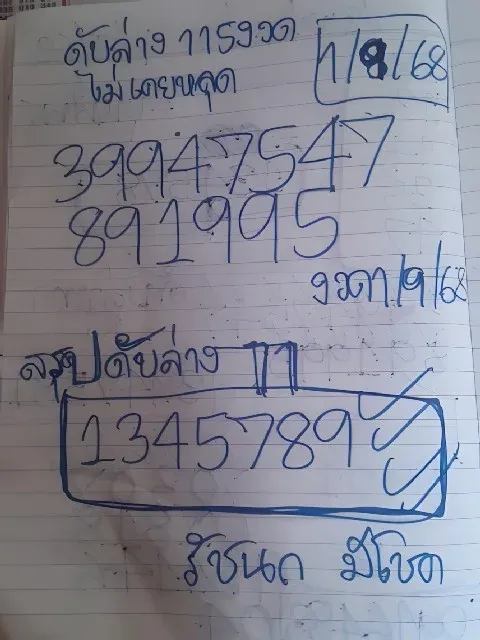 ดับล่าง 115งวด
1/8/68
ไม่เคยหลุด
39947547
891995
งวด1/9/68
สรุปดับล่าง 11
1345789
รัชนก มีโชค